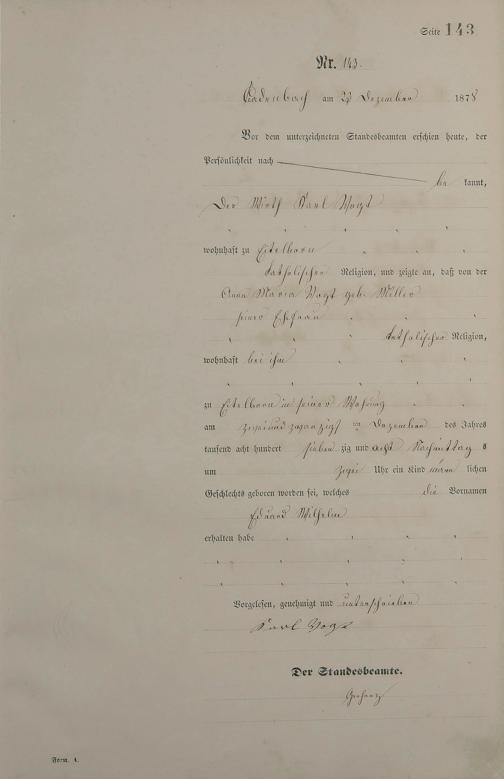 Seite 143
Nr. 143.
Cadenbach am 24 Dezember 1878
Vor dem unterzeichneten Standesbeamten erschien heute, der
Persönlichkeit nach
be kannt,
Der Wirth Karl Vogt
wohnhaft zu Eitelborn
katholischer Religion, und zeigte an, daß von der
Anna Maria Vogt geb. Müller
seiner Ehefrau
katholischer Religion,
wohnhaft bei ihm
zu Eitelborn in seiner Wohnung
am zweiundzwanzigst en Dezember des Jahres
tausend acht hundert sieben zig und acht Nachmittag s
um zwei Uhr ein Kind männ lichen
Geschlechts geboren worden sei, welches die Vornamen
Eduard Wilhelm
erhalten habe
Vorgelesen, genehmigt und unterschrieben
Karl Vogt
Der Standesbeamte.
Form. A.